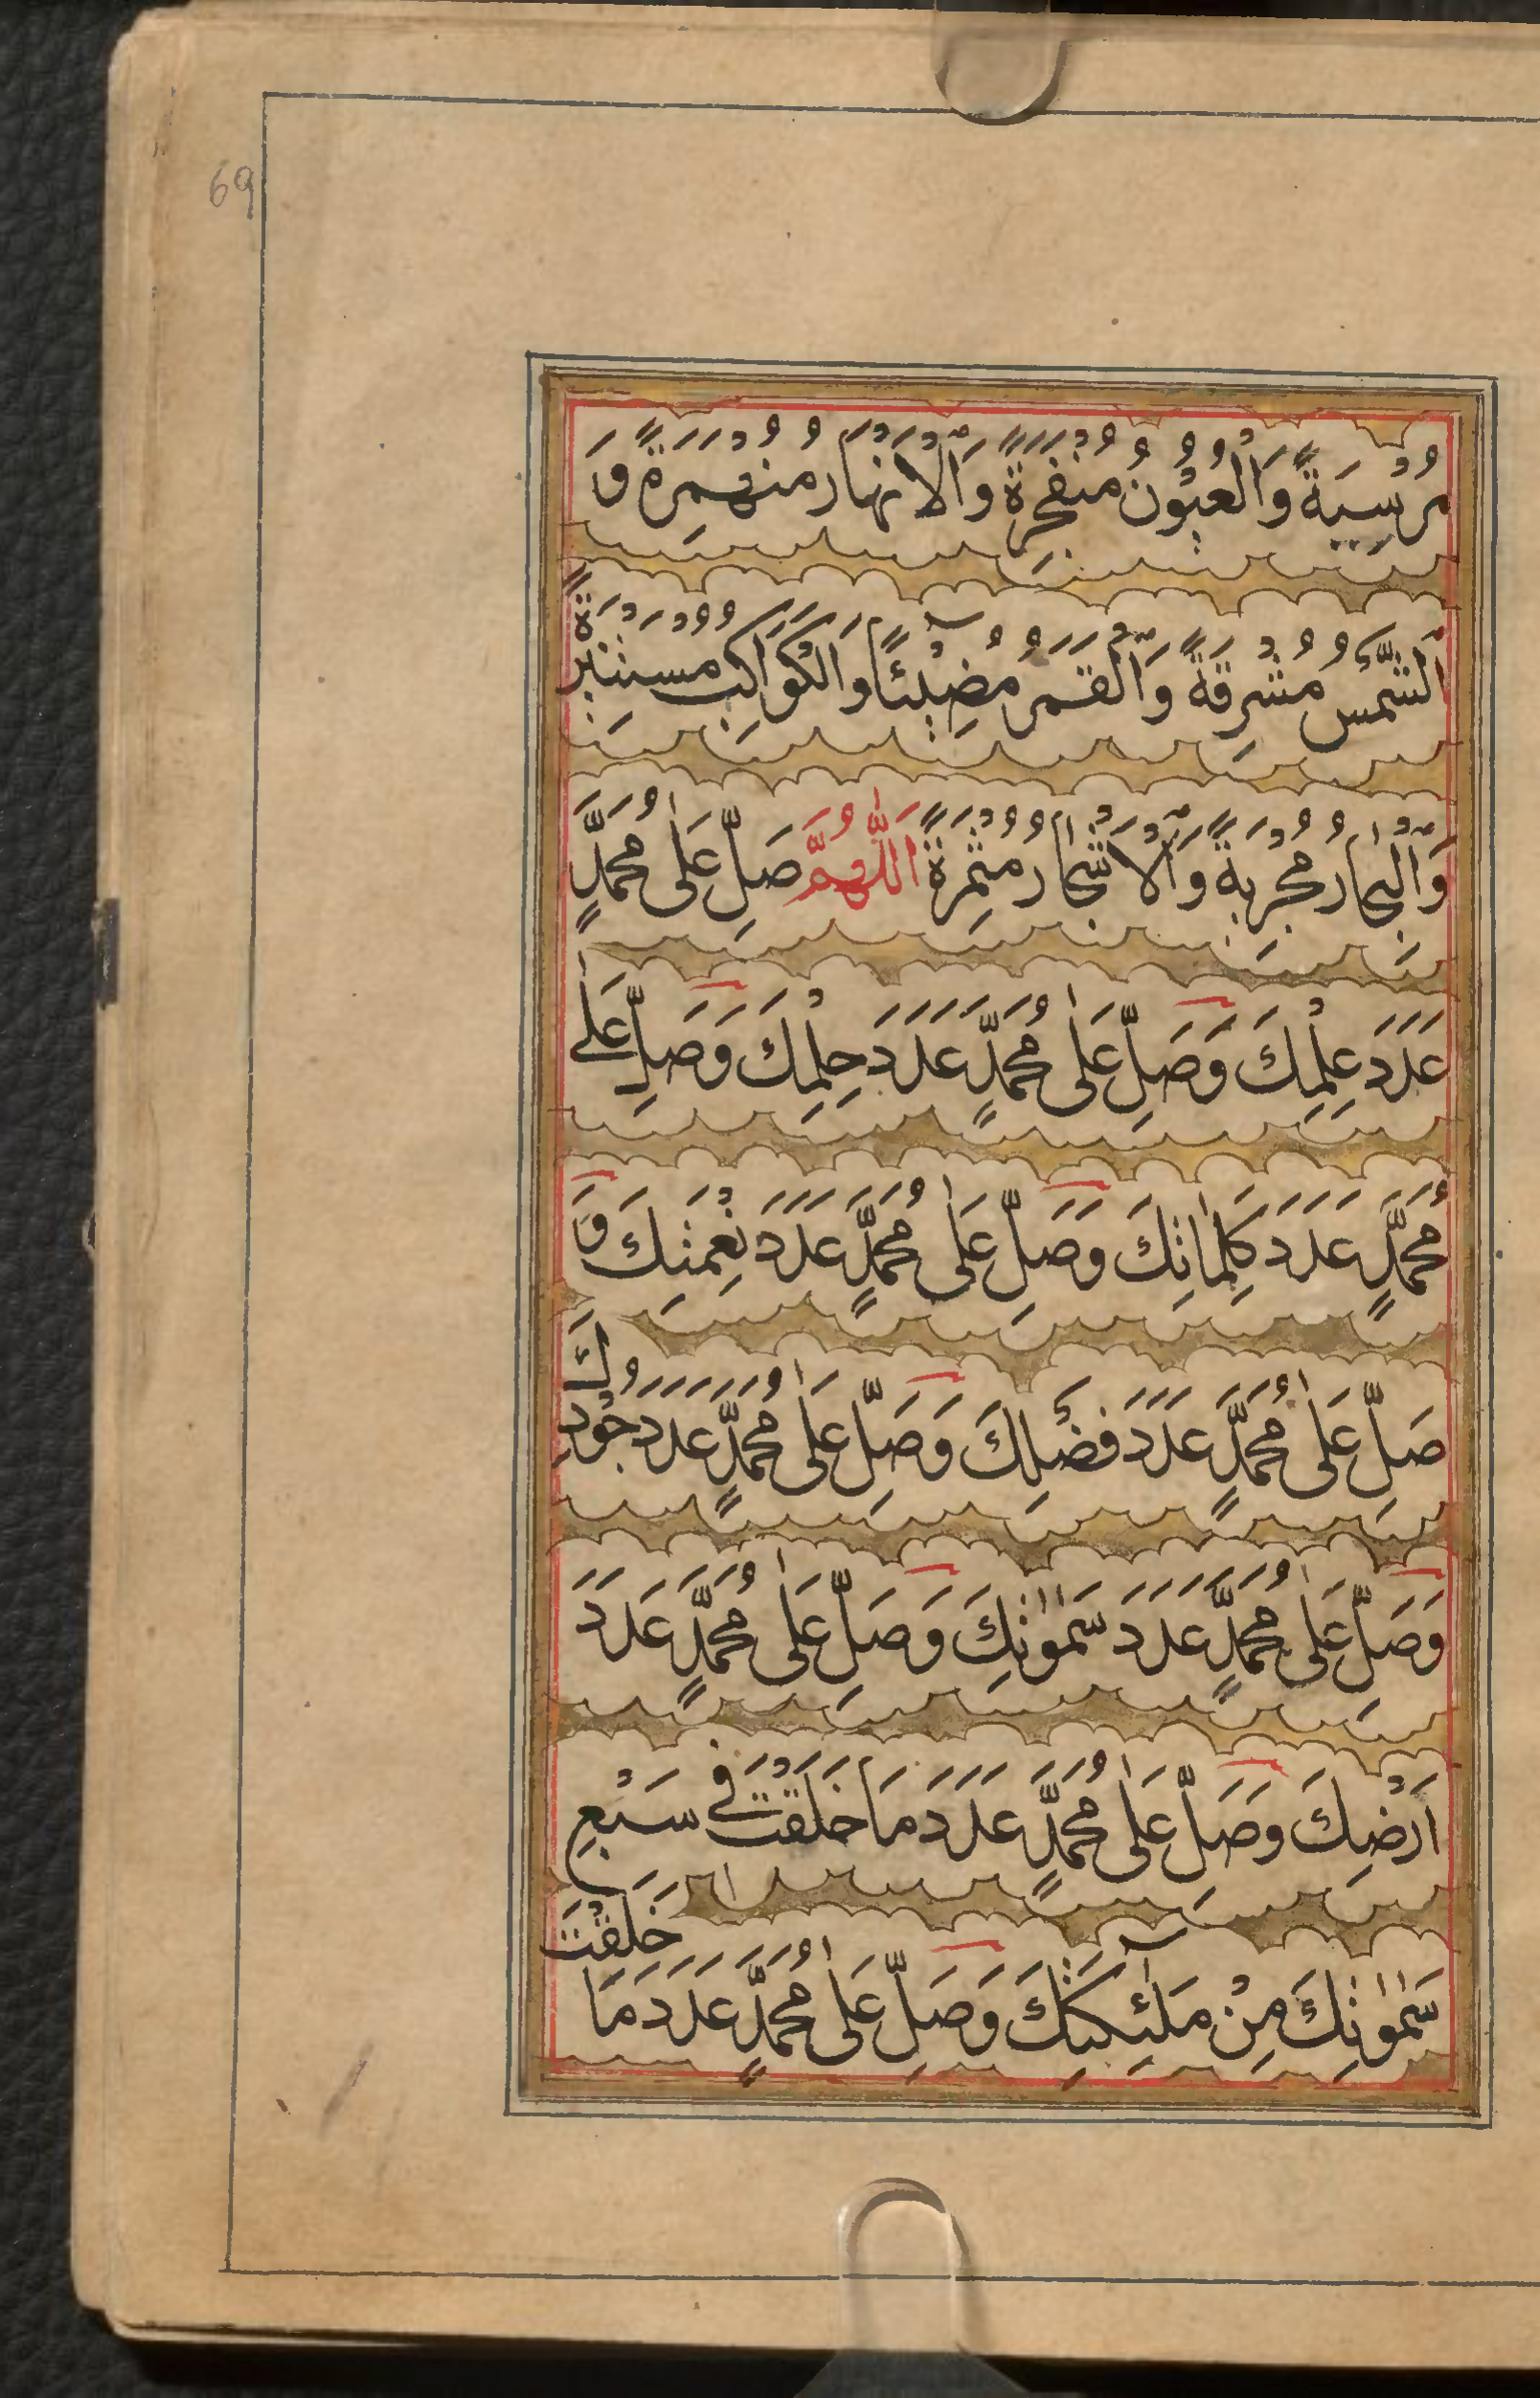 69
مُرْسِيَةً وَالْعُيُوْنُ مُنْفَجِرَةً وَالْاَنْهَارُ مُنْهَمِرَةً وَ
الشَّمْسُ مُشْرِقَةً وَالْقَمَرُ مُضِيْئًا وَالْكَوَاكِبُ مُسْتَنِيْرَةً
وَالْبِحَارُ مُجْرِيَةً وَالْاَشْجَارُ مُثْمِرَةً اَللّٰهُمَّ صَلِّ عَلٰى مُحَمَّدٍ
عَدَدَ عِلْمِكَ وَصَلِّ عَلٰى مُحَمَّدٍ عَدَدَ حِلْمِكَ وَصَلِّ عَلٰى
مُحَمَّدٍ عَدَدَ كَلِمَاتِكَ وَصَلِّ عَلٰى مُحَمَّدٍ عَدَدَ نِعْمَتِكَ وَ
صَلِّ عَلٰى مُحَمَّدٍ عَدَدَ فَضْلِكَ وَصَلِّ عَلٰى مُحَمَّدٍ عَدَدَ جُوْدِكَ
وَصَلِّ عَلٰى مُحَمَّدٍ عَدَدَ سَمٰوٰتِكَ وَصَلِّ عَلٰى مُحَمَّدٍ عَدَدَ
اَرْضِكَ وَصَلِّ عَلٰى مُحَمَّدٍ عَدَدَ مَا خَلَقْتَ فِي سَبْعِ
سَمٰوٰتِكَ مِنْ مَلٰٓئِكَتِكَ وَصَلِّ عَلٰى مُحَمَّدٍ عَدَدَ مَا خَلَقْتَ